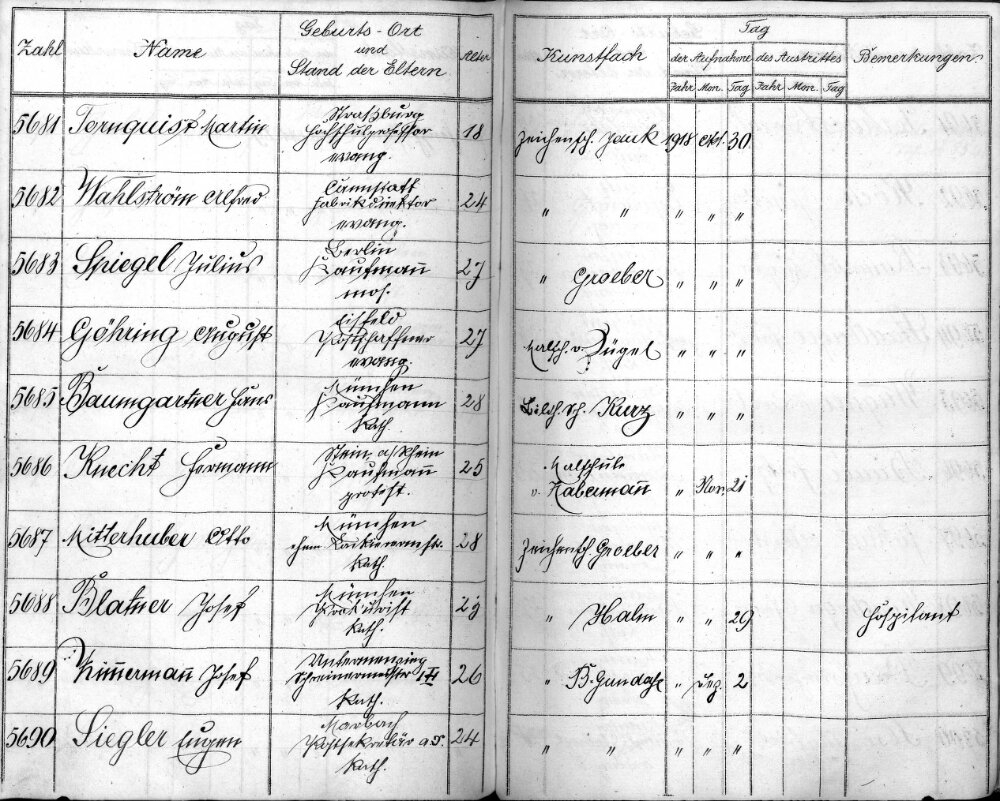 Zahl Name Geburts-Ort und Stand der Eltern Alter Kunstfach Tag der Aufnahme des Austrittes Bemerkungen
Jahr Mon. Tag Jahr Mon. Tag
5681 Ternquist Martin Straßburg Hochschulprofessor evang. 18 Zeichensch. Jank 1918 Okt. 30
5682 Wahlström Alfred Cannstatt Fabrikdirektor evang. 24 " " " " "
5683 Spiegel Julius Berlin Kaufmann mos. 27 " Groeber " " "
5684 Göhring August Eisfeld Postschaffner evang. 27 Malsch. v. Zügel " " "
5685 Baumgartner Hans München Kaufmann kath. 28 Bildh. Sch. Kurz " " "
5686 Knecht Hermann Stein a/Rhein Kaufmann protest. 25 Malschule v. Habermann " Nov. 21
5687 Mitterhuber Otto München kath. 28 Zeichensch. Groeber " " "
5688 Blatner Josef München Prokurist kath. 29 " Halm " " 29 Hospitant
5689 Zimmermann Josef Untermenzing Schreinermeister kath. 26 " B. Gundahl " Dez. 2
5690 Siegler Eugen Marbach Postsekretär a.D. kath. 24 " " " " "